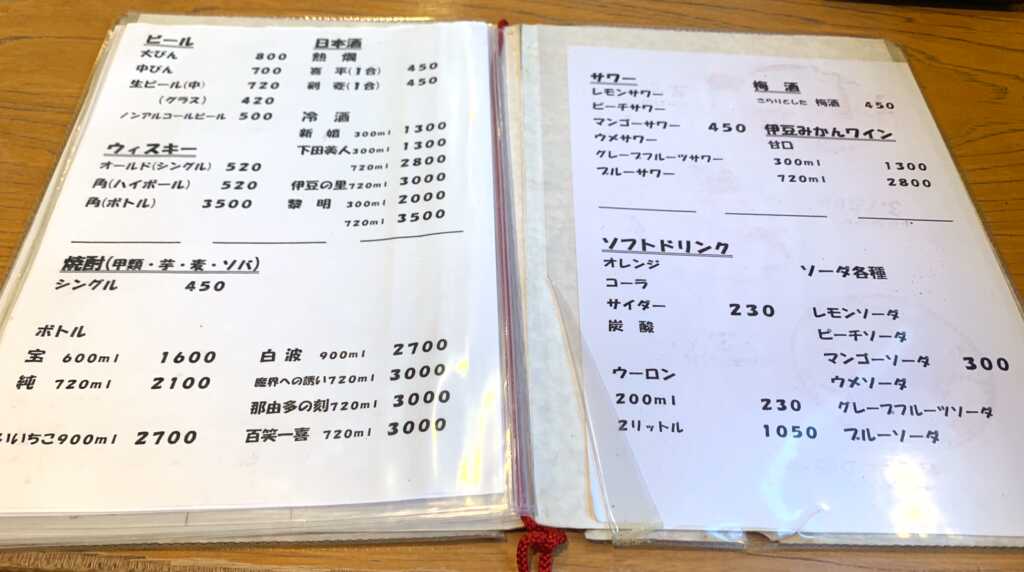 ビール
大びん 800
中びん 700
生ビール(中) 720
(グラス) 420
ノンアルコールビール 500
ウィスキー
オールド(シングル) 520
角(ハイボール) 520
角(ボトル) 3500
日本酒
熱燗
喜平(1合) 450
剣菱(1合) 450
冷酒
新婚 300ml 1300
下田美人 300ml 1300
720ml 2800
伊豆の里 720ml 3000
黎明 300ml 2000
720ml 3500
焼酎(甲類・芋・麦・ソバ)
シングル 450
ボトル
宝 600ml 1600
純 720ml 2100
いいちこ 900ml 2700
白波 900ml 2700
魔界への誘い 720ml 3000
那由多の刻 720ml 3000
百笑一喜 720ml 3000
サワー
レモンサワー
ピーチサワー
マンゴーサワー 450
ウメサワー
グレープフルーツサワー
ブルーサワー
梅酒
さらりとした 梅酒 450
伊豆みかんワイン
甘口
300ml 1300
720ml 2800
ソフトドリンク
オレンジ
コーラ
サイダー 230
炭酸
ウーロン
200ml 230
2リットル 1050
ソーダ各種
レモンソーダ
ピーチソーダ
マンゴーソーダ 300
ウメソーダ
グレープフルーツソーダ
ブルーソーダ